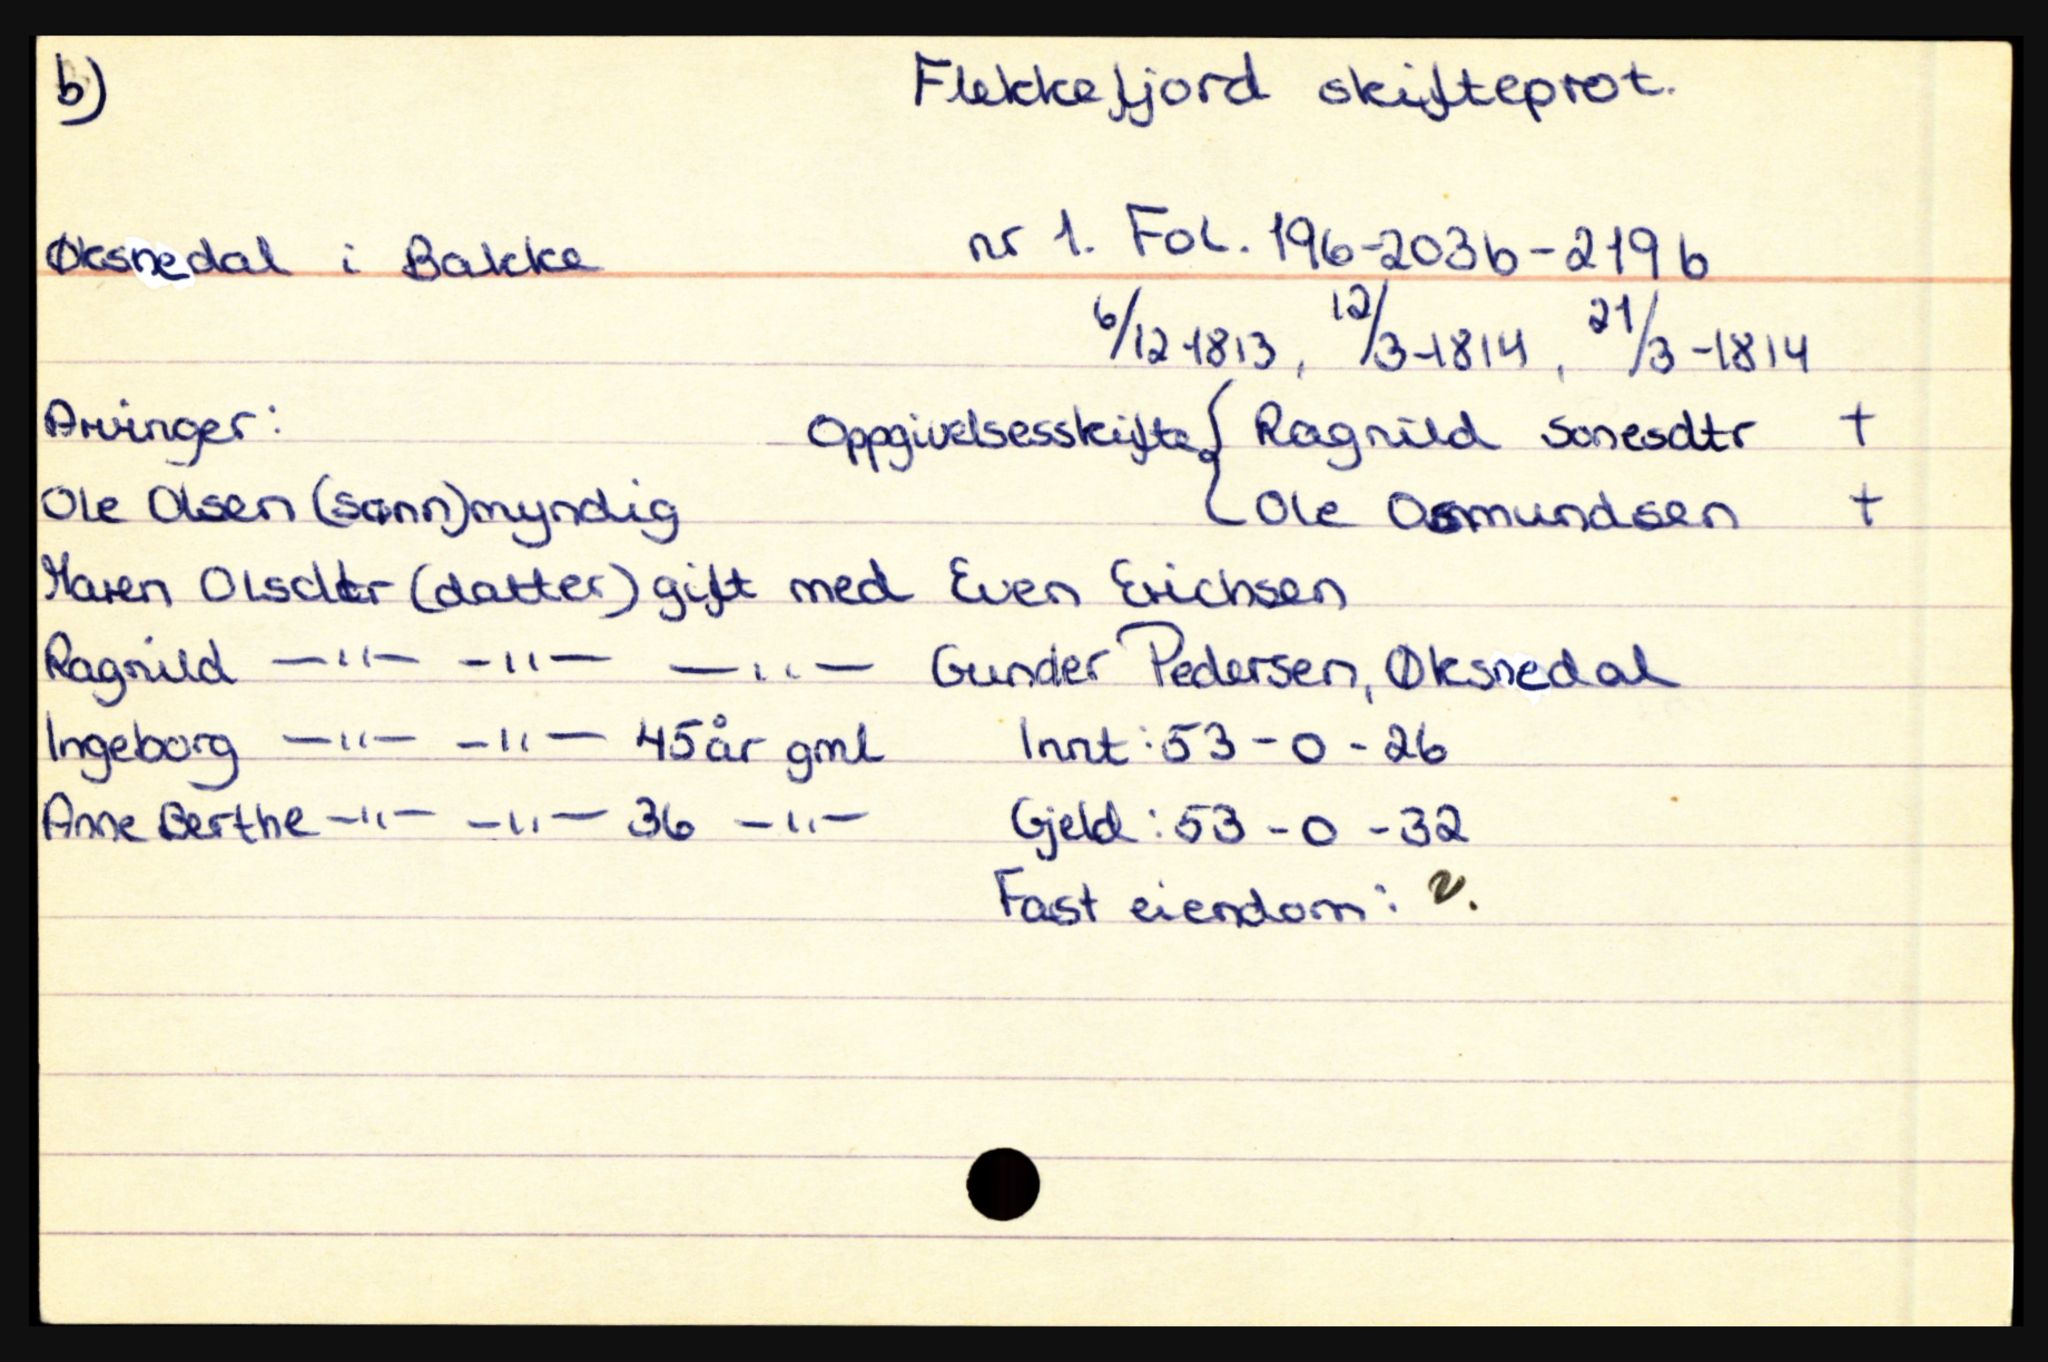 b) Flekkefjord skifteprot.
Øksnedal i Bakke nr 1. Fol. 196-203b-219b
6/12-1813, 12/3-1814, 21/3-1814
Arvinger: Oppgivelsesskifte { Ragnild Sonesdtr †
Ole Olsen (sønn) myndig Ole Osmundsen †
Maren Olsdtr (datter) gift med Even Erichsen
Ragnild —"— —"— —"— Gunder Pedersen, Øksnedal
Ingeborg —"— —"— 45 år gml Innt: 53-0-26
Anne Berthe —"— —"— 36 —"— Gjeld: 53-0-32
Fast eiendom: